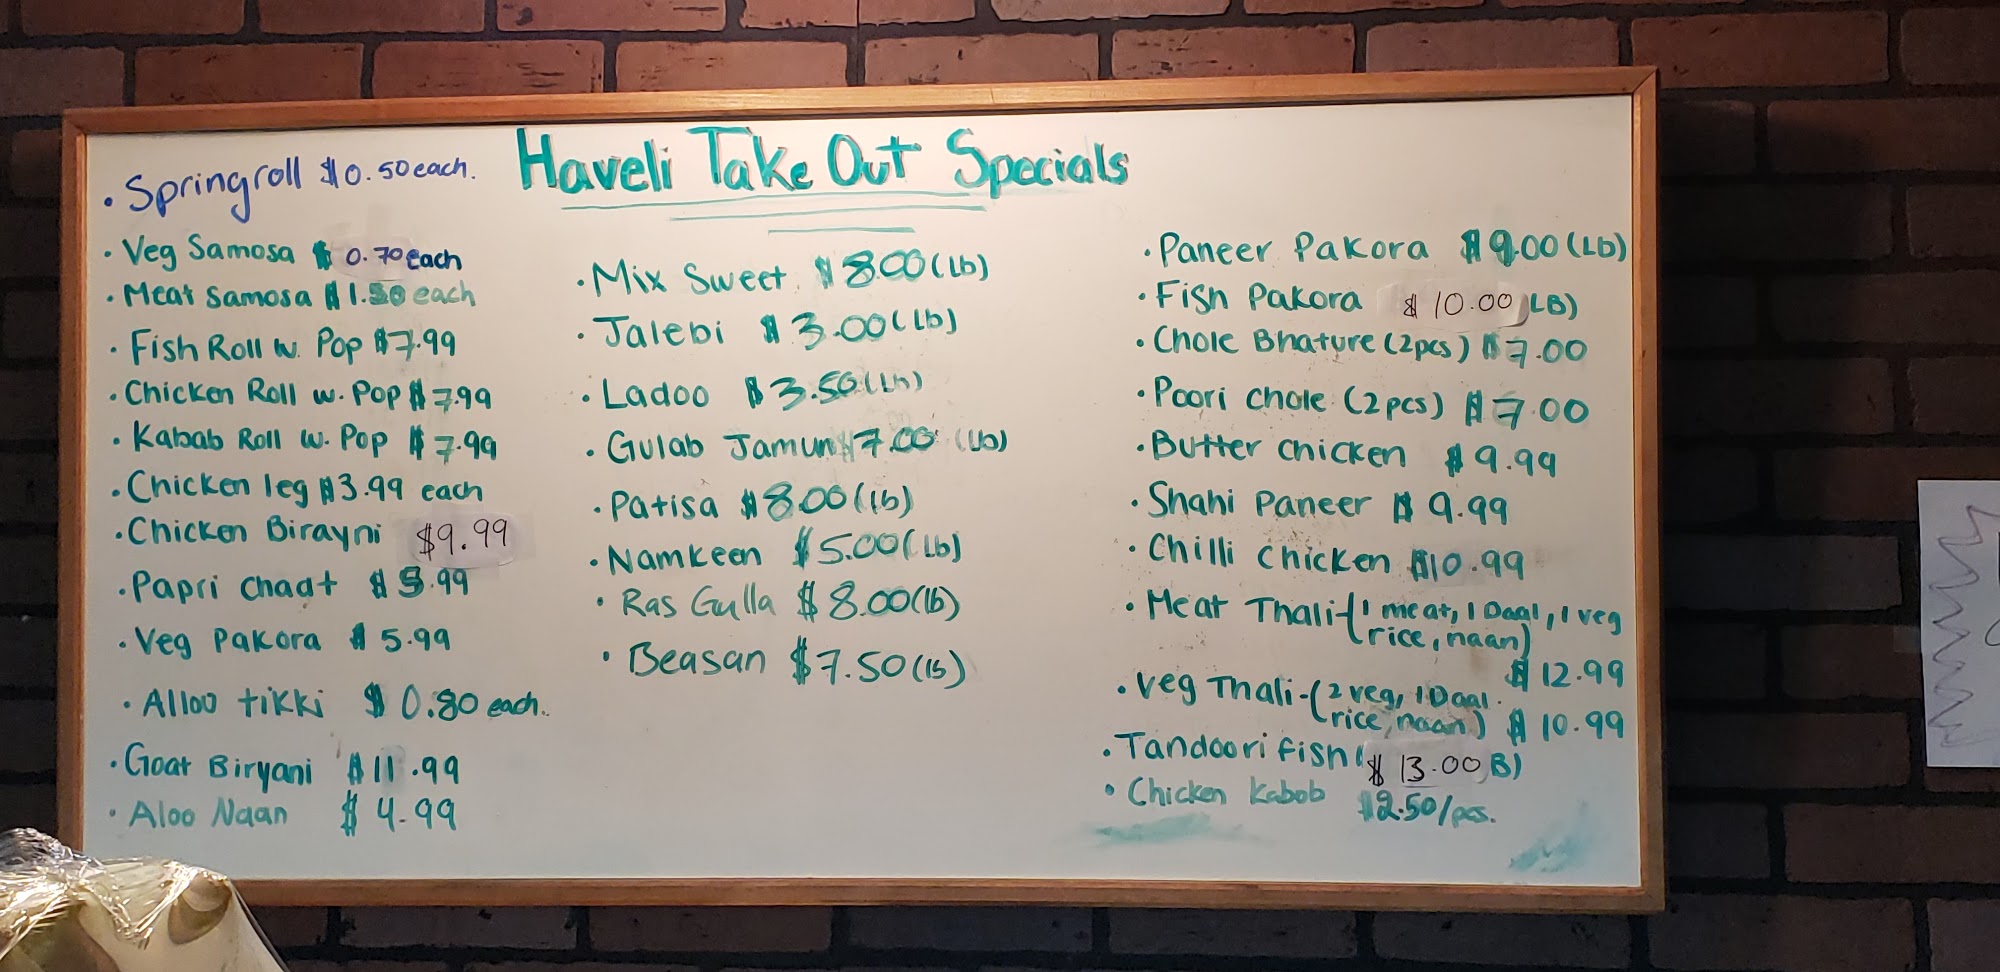 Haveli Take Out Specials
• Springroll $0.50 each.
• Veg Samosa $ 0.70 each
• Meat Samosa $1.50 each
• Fish Roll w. Pop $7.99
• Chicken Roll w. Pop $7.99
• Kabab Roll w. Pop $7.99
• Chicken leg $3.99 each
• Chicken Birayni $9.99
• Papri chaat $5.99
• Veg Pakora $5.99
• Alloo tikki $0.80 each..
• Goat Biryani $11.99
• Aloo Naan $4.99
• Mix Sweet $8.00 (Lb)
• Jalebi $3.00 (Lb)
• Ladoo $3.50 (Lb)
• Gulab Jamun $7.00 (Lb)
• Patisa $8.00 (lb)
• Namkeen $5.00 (Lb)
• Ras Gulla $8.00 (lb)
• Beasan $7.50 (lb)
• Paneer Pakora $9.00 (Lb)
• Fish Pakora $10.00 LB)
• Chole Bhature (2pcs) $7.00
• Poori chole (2pcs) $7.00
• Butter chicken $9.99
• Shahi Paneer $9.99
• Chilli chicken $10.99
• Meat Thali-(1 meat, 1 Daal, 1 veg
(rice, naan)
$12.99
• Veg Thali-(2 veg, 1 Daal.
(rice, naan) $10.99
• Tandoori fish ( $13.00 B)
• Chicken Kabob $2.50/pcs.